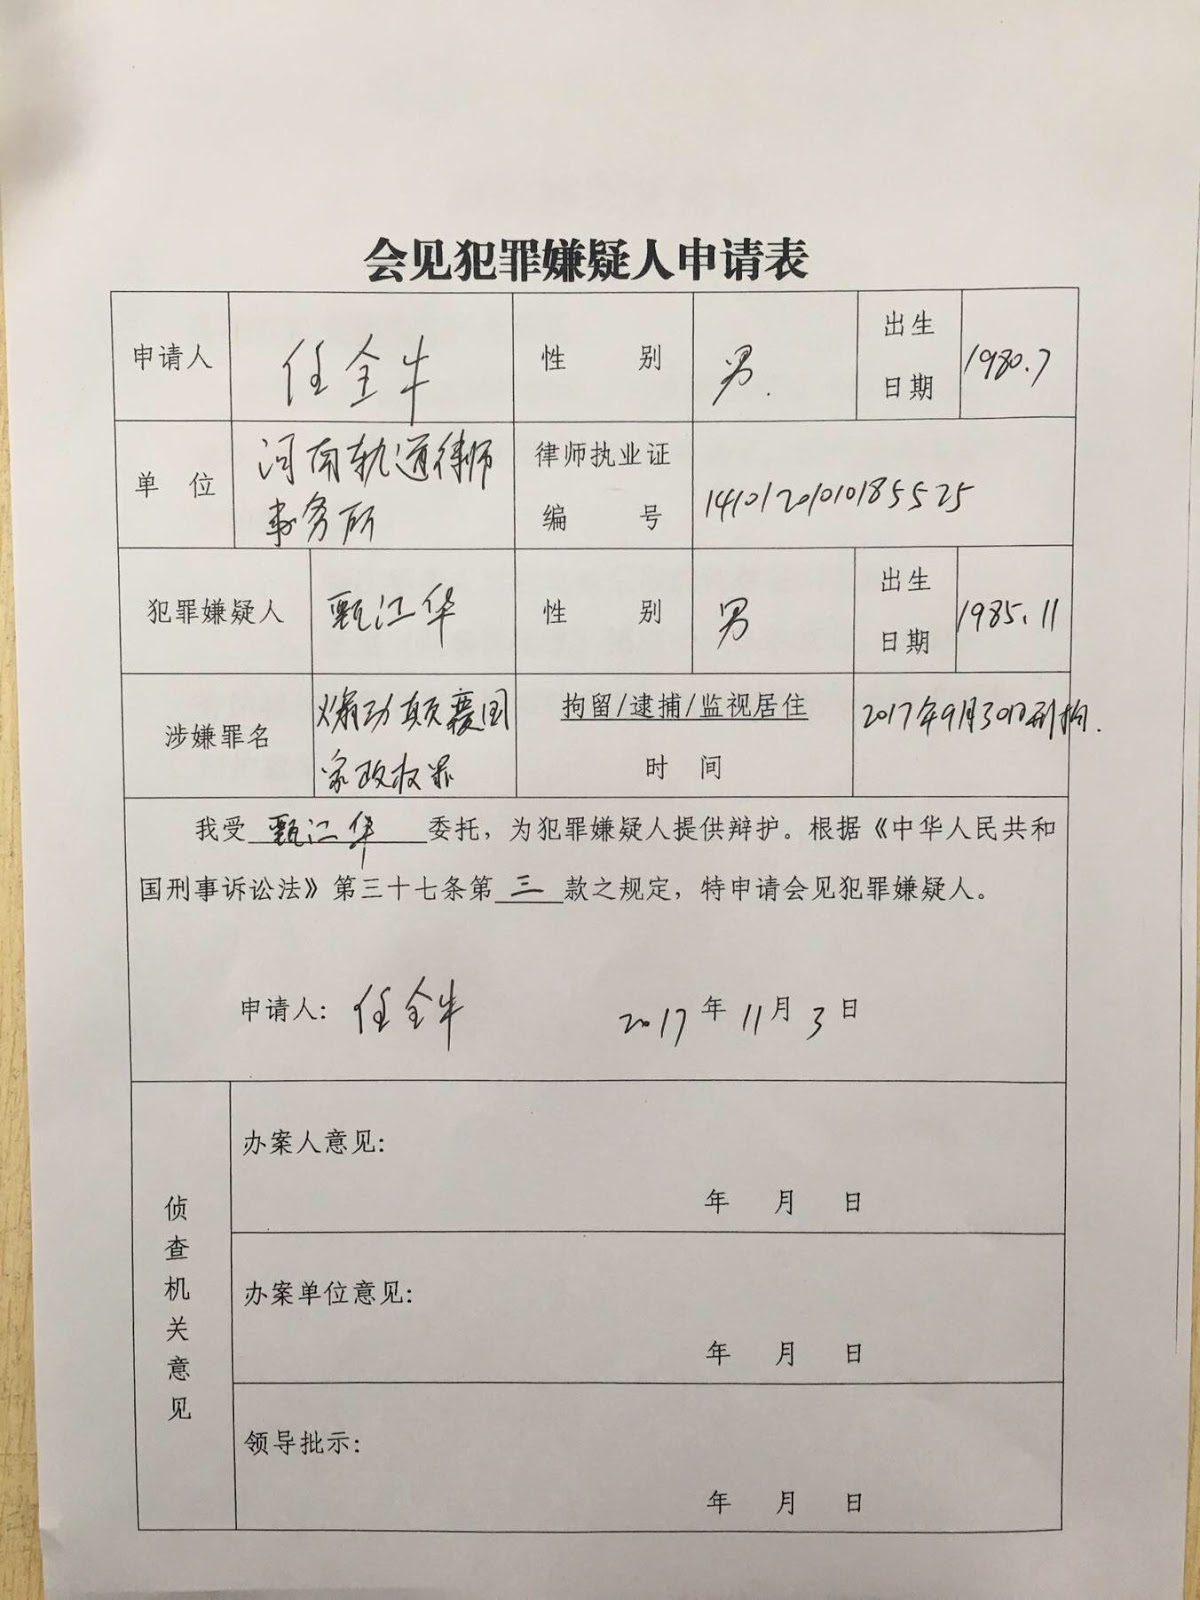 会见犯罪嫌疑人申请表
申请人 任全牛 性 别 男. 出生日期 1980.7
单 位 河南轨道律师事务所 律师执业证编 号 14101201010185525
犯罪嫌疑人 甄江华 性 别 男 出生日期 1985.11
涉嫌罪名 煽动颠覆国家政权罪 拘留/逮捕/监视居住时 间 2017年9月30日刑拘.
我受 甄江华 委托，为犯罪嫌疑人提供辩护。根据《中华人民共和
国刑事诉讼法》第三十七条第 三 款之规定，特申请会见犯罪嫌疑人。
申请人：任全牛 2017 年 11 月 3 日
侦查机关意见
办案人意见：
年 月 日
办案单位意见：
年 月 日
领导批示：
年 月 日